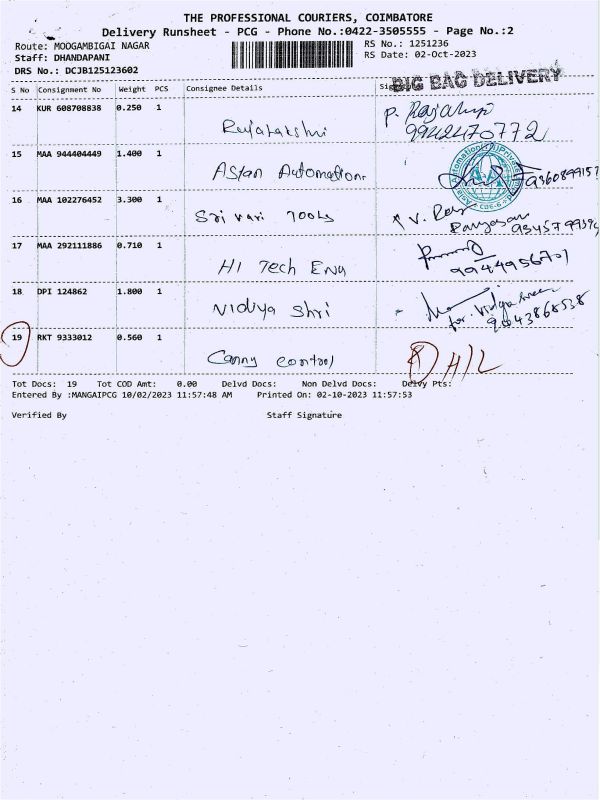 THE PROFESSIONAL COURIERS, COIMBATORE
Delivery Runsheet - PCG - Phone No.:0422-3505555 - Page No.:2
Route: MOOGAMBIGAI NAGAR
RS No.: 1251236
Staff: DHANDAPANI
RS Date: 02-Oct-2023
DRS No.: DCJB125123602
BIG BAG DELIVERY
S No Consignment No Weight PCS Consignee Details
14 KUR 608708838 0.250 1
9942470772
15 MAA 944404449 1.400 1 Asian Automation
16 MAA 102276452 3.300 1 Sri vari Tools
V.
17 MAA 292111886 0.710 1 HI Tech Eng
9944956701
18 DPI 124862 1.800 1 Vidiya Shri
for. Vidya
9043868538
19 RKT 9333012 0.560 1 Canny control
H/L
Tot Docs: 19 Tot COD Amt: 0.00 Delvd Docs: Non Delvd Docs: Delvy Pts:
Entered By :MANGAIPCG 10/02/2023 11:57:48 AM Printed On: 02-10-2023 11:57:53
Verified By Staff Signature